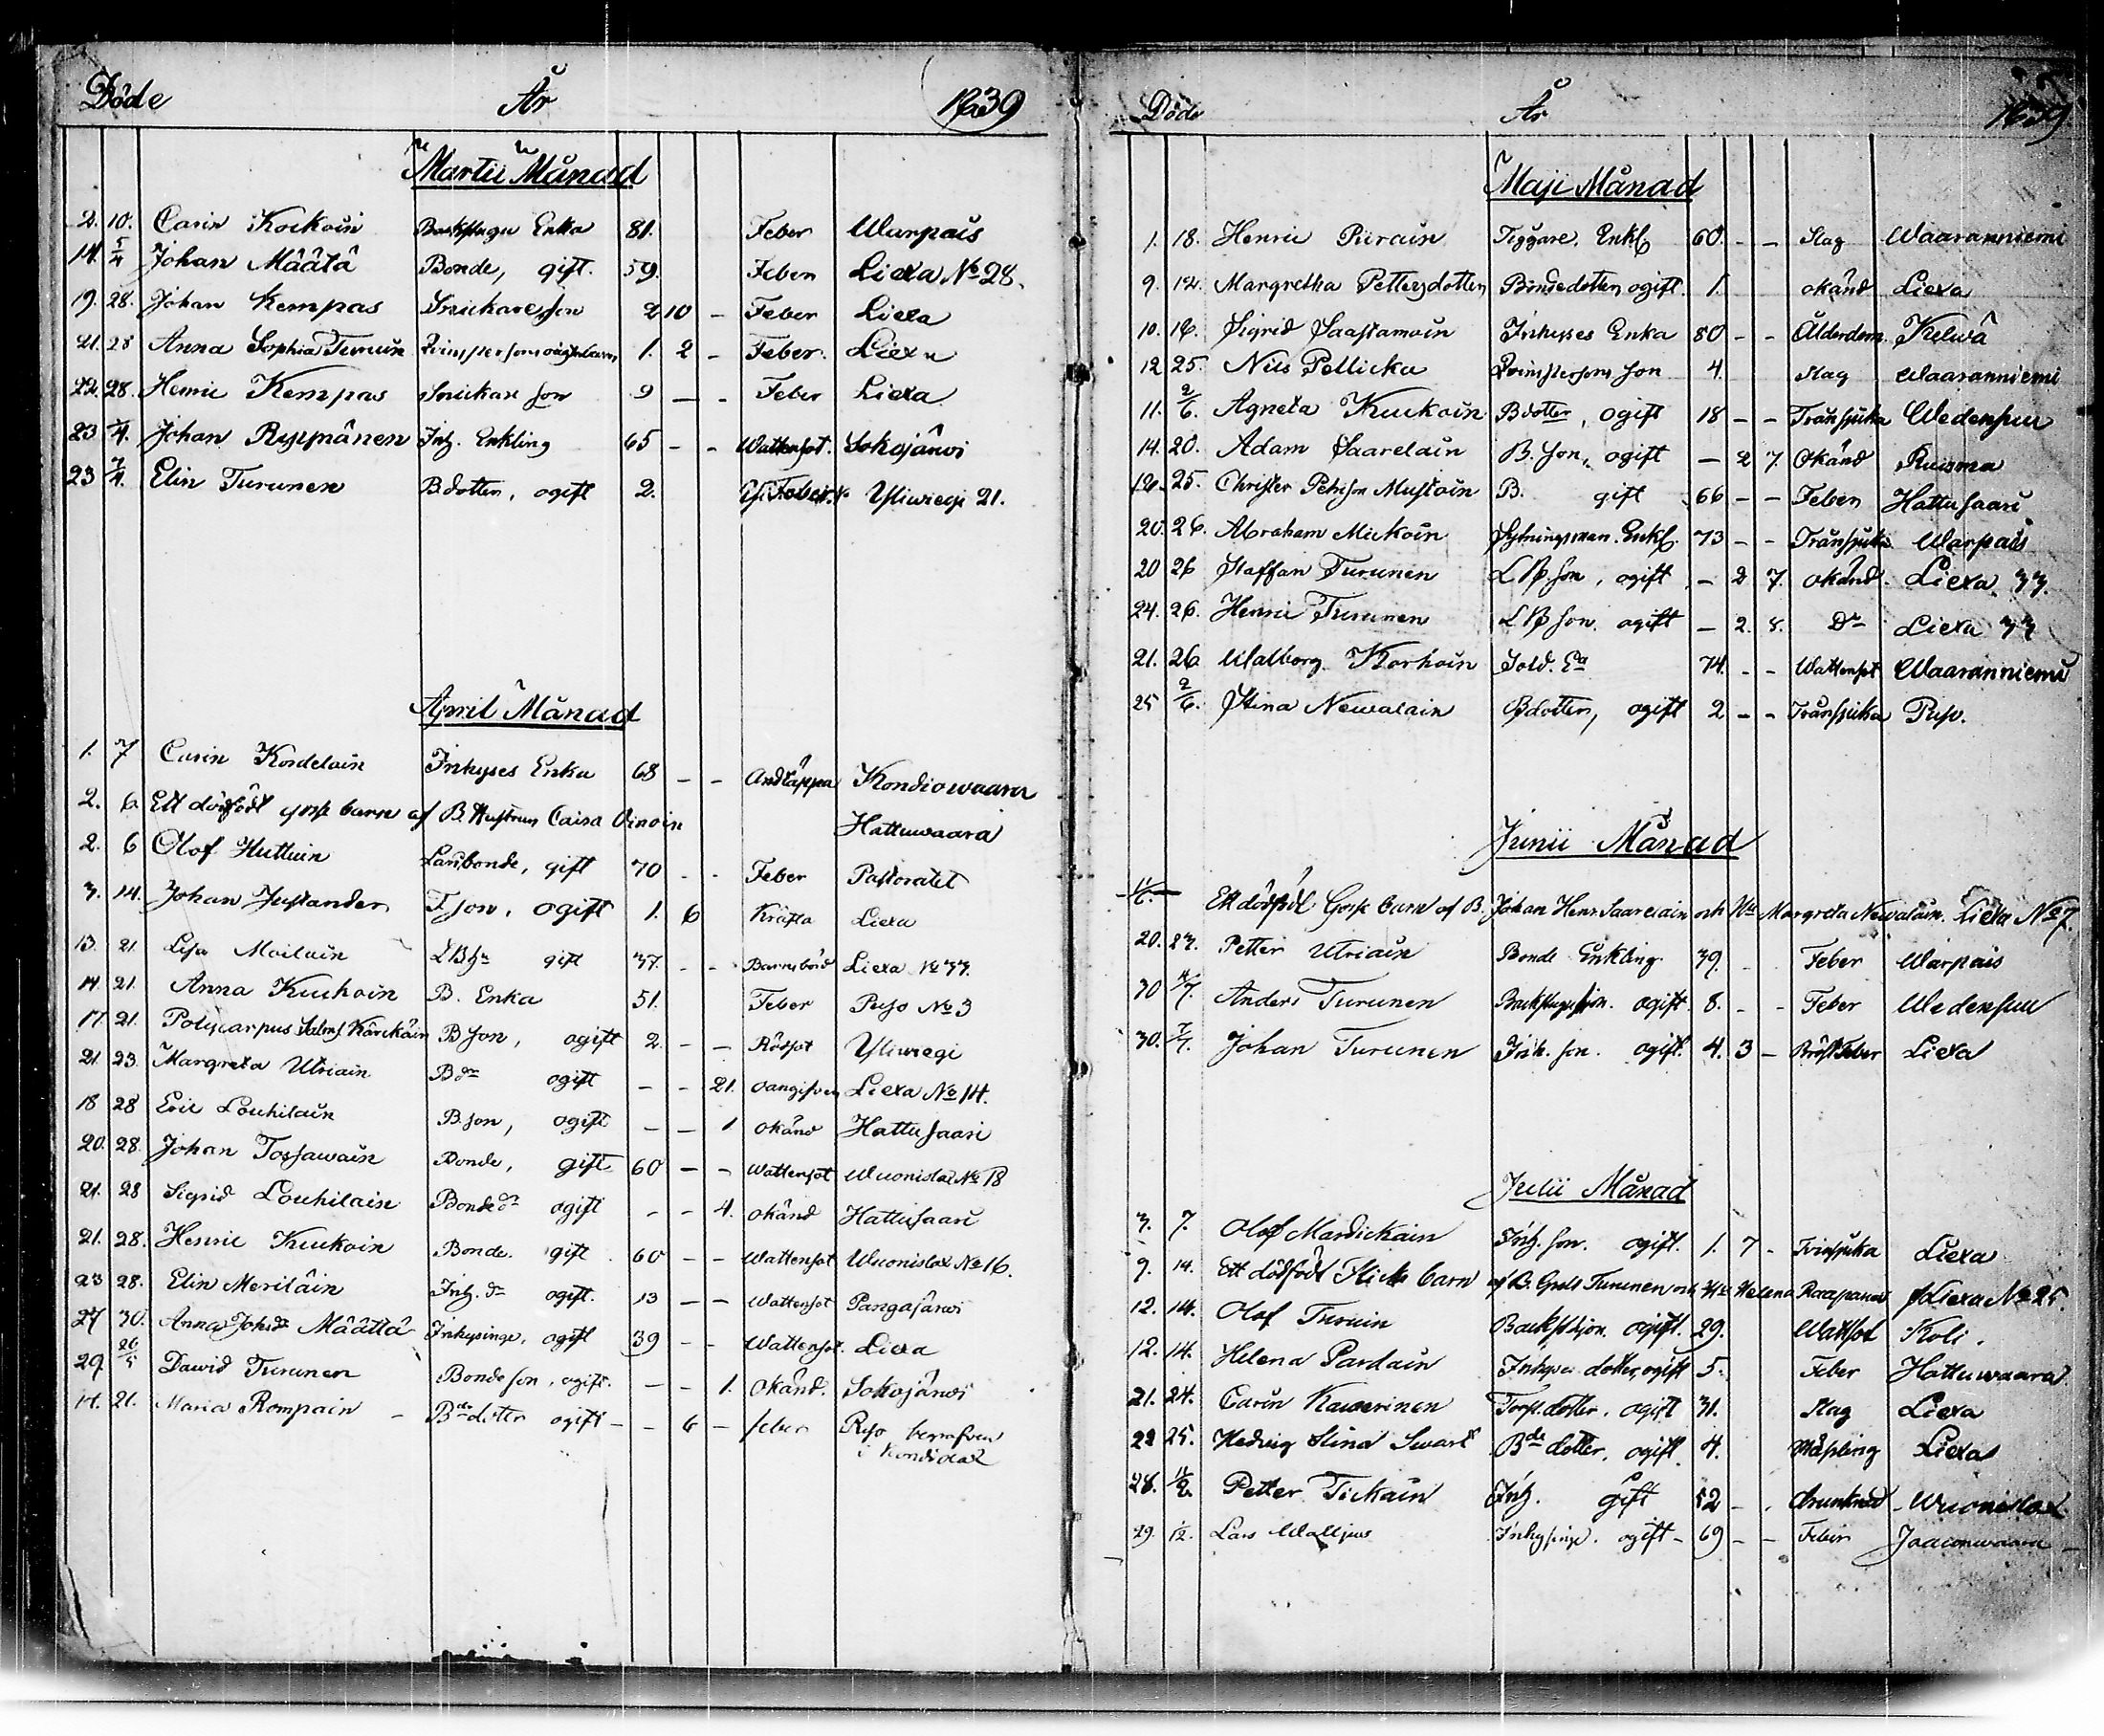 Döde År 1839
Martii Månad
2. 10. Carin Kockoin Backstugu Enka 81. Feber Warpais
14. 5/4 Johan Määtä Bonde, gift. 59. Feber Liexa No 28.
19. 28. Johan Kempas Snickare Son 2 10 – Feber Liexa
21. 28 Anna Sophia Turuin 1. 2 – Feber. Liexa
22. 28. Henric Kempas Snickare Son 9 – – Feber Liexa
23 7/4. Johan Ryynänen Inh. Enkling 65 – – Wattensot. Sokojärwi
23 7/4. Elin Turunen Bdotter, ogift 2. Yliwiegi 21.
April Månad
1. 7 Carin Kordelain Inhyses Enka 68 – – Andtäppa Kondiowaara
2. 6 Ett dödfödt gosse barn af B. Hustrun Caisa Oinoin Hattuwaara
2. 6 Olof Huttuin Landbonde, gift 70 – – Feber Pastoratet
3. 14. Johan Justander T Son, ogift 1. 6 Kräfta Liexa
13. 21. Lisa Moilain gift 37. – – Barnsbörd Liexa No 33.
14. 21. Anna Kuckoin B. Enka 51. Feber Puso No 3
17. 21. Polycarpus Kärckäin B Son, ogift 2. – – Rödsot Yliwiegi
21 23. Margreta Utriain Bdr ogift – – 21. oangifven Liexa No 14.
18 28 Eric Louhilain B. Son, ogift – – 1 okänd Hattusaari
20. 28. Johan Tossawain Bonde, gift 60 – – Wattensot Wuonislax No 18
21. 28 Sigrid Louhilain Bonde dr ogift – – 4. okänd Hattusaari
21. 28. Henric Kuckoin Bonde. gift 60 – – Wattensot Wuonislax No 16.
23 28. Elin Meriläin Inh. dr ogift. 13 – – Wattensot Pangajärwi
27 30. Anna Johsdr Määttä Inhysinge, ogift 39 – – Wattensot. Liexa
29. 26/5 Dawid Turunen Bonde Son, ogift. – – 1. okänd. Sokojärwi
14. 21. Maria Rompain – Bde dotter ogift – – 6 – feber Puso begrafven
i Kondiolax
Döde År 1839
Maji Månad
1. 18. Henric Piirain Tiggare. Enkl 60. – – Slag Waaranniemi
9. 12. Margretha Pettersdotter Bondedotter, ogift. 1. okänd Liexa
10. 16. Sigrid Saastamoin Inhyses Enka 80 – – Ålderdom Kelwä
12 25. Nils Pellicka Son 4. Slag Waaranniemi
11. 2/6. Agneta Kuckoin Bdotter, ogift 18 – – Tränsjuka Wedensuu
14. 20. Adam Saarelain B. Son, ogift – 2 7. Okänd Ruisma
12. 25. Christer Petrison Mustoin B. gift 66 – – Feber Hattusaari
20. 26. Abraham Mickoin Sytningsman. Enkl. 73 – – Tränsjuka Warpais
20 26 Staffan Turunen L B Son, ogift – 2 7. okänd. Liexa. 33.
24. 26. Henric Turunen L B Son. ogift – 2. 8. Do Liexa 33
21. 26 Walborg Korhoin Sold. Ea 74. – – Wattensot Waaranniemi
25 2/6. Stina Newalain Bdotter, ogift 2 – – Tränsjuka Puso.
Junii Månad
Ett dödfödt Gosse barn af B. Johan Henr. Saarelain och Hu Margreta Newalain. Liexa No 7.
20. 23. Petter Utriain Bonde Enkling 39. Feber Warpais
30 4/7. Anders Turunen Backstuguson. ogift. 8. – – Feber Wedensuu
30. 7/7. Johan Turunen Inh. Son. ogift. 4. 3 – Bröst Feber Liexa
Julii Månad
3. 7. Olof Mardickain Inh. Son. ogift. 1. 7 – Liexa
9. 14. Ett dödfödt Flicke barn af B. Turunen och Hu Helena Liexa No 25.
12. 14. Olof Turuin Backst. Son. ogift. 29. Wattsot Koli.
12. 14. Helena Pardain Inhyses dotter, ogift 5. Feber Hattuwaara
21. 24. Carin Kawerinen Torp. dotter. ogift 31. Slag Liexa
22 25. Hedvig Stina Swart Bde dotter. ogift. 4. Mässling Liexa
28. Petter Tickain Inh. gift 52 – – drunknad Wuonislax
29. Lars Walljus Inhysinge. ogift – 69 – – Feber Jaaconwaara –